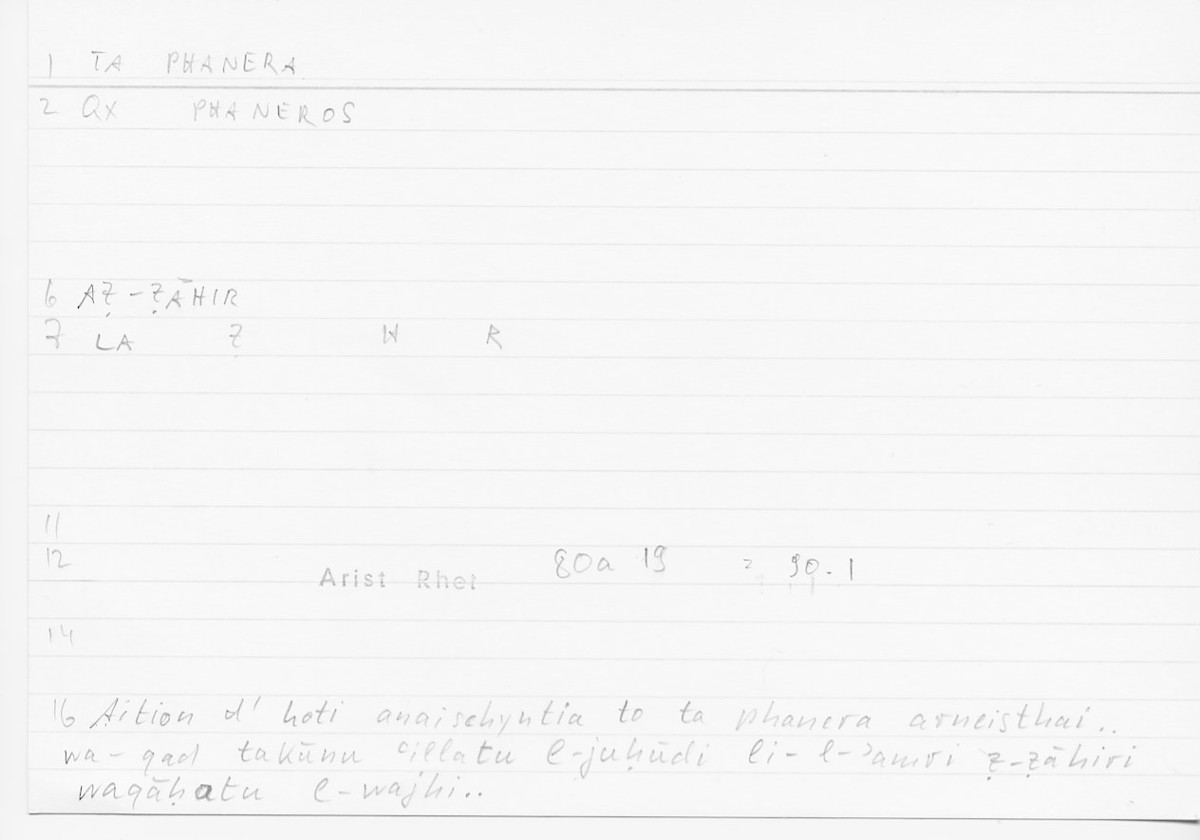 1 TA PHANERA
2 Qx PHANEROS
6 AẒ-ẒĀHIR
7 LA Ẓ H R
11
12 Arist Rhet 80a 19 = 90.1
14
16 Aition d' hoti anaischyntia to ta phanera arneisthai..
wa-qad takūnu ʿillatu l-juḥūdi li-l-ʾamri ẓ-ẓāhiri
waqāḥatu l-wajhi..